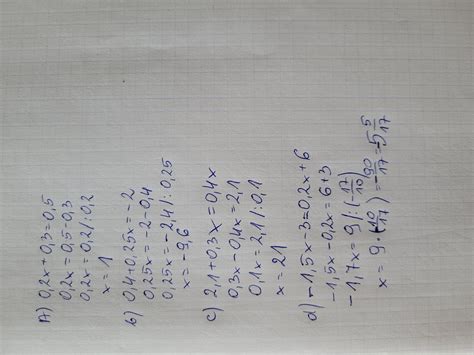 A) 0,2x+0,3=0,5
0,2x=0,5-0,3
0,2x=0,2/:0,2
x=1
b) 0,4+0,25x=-2
0,25x=-2-0,4
0,25x=-2,4/:0,25
x=-9,6
c) 2,1+0,3x=0,4x
0,3x-0,4x=2,1
0,1x=2,1/:0,1
x=21
d) -1,5x-3=0,2x+6
-1,5x-0,2x=6+3
-1,7x=9/:(-17/10)
x=9·(-10/17)=-90/17=-5 5/17